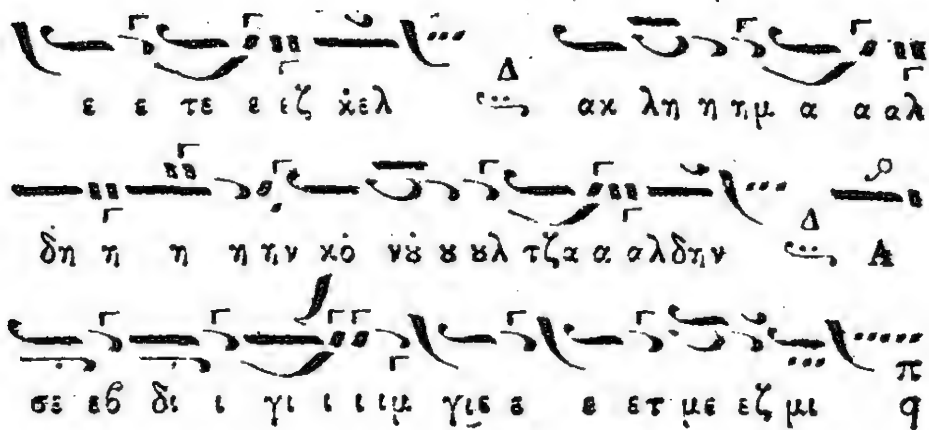 ε ε τε ε εζ κ̇ελ Δ ακ λη η ημ α α αλ
δ̇η η η η ην κȯ νȣ̇ ȣ ȣλ τζα α αλδην Δ Α
σε εϐ δι ι γι ι ι ιμ γιε ε ε ετ με εζ μι π q